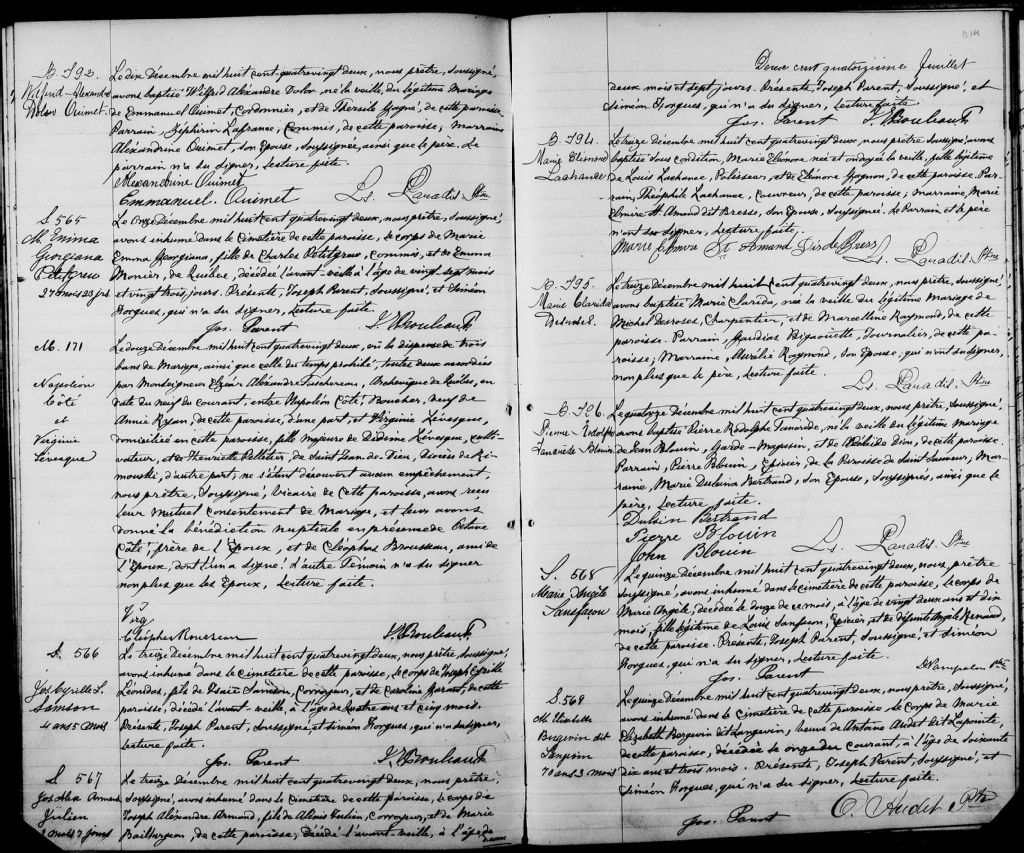 B. 592.
Wilfrid-Alexandre
Dolor Ouimet
Le dix Décembre mil huit cent-quatrevingt deux, nous prêtre, soussigné,
avons baptisé Wilfrid Alexandre Dolor, né la veille du légitime Mariage
de Emmanuel Ouimet, Cordonnier, et de Thersile Gagné, de cette paroisse
Parrain, Zéphirin Lafrance, Commis, de cette paroisse; Marraine
Alexandrine Ouimet, son Epouse, soussignée, ainsi que le père. Le
parrain n'a su signer, lecture faite.
Alexandrine Ouimet
Emmanuel. Ouimet Ls. Paradis. Ptre
S 565
M. Emma
Georgiana
Petitgrew
27 mois 23 jrs
Le Onze Décembre mil huit cent quatrevingt deux, nous prêtre, soussigné,
avons inhumé dans le cimetière de cette paroisse, le corps de Marie
Emma Georgiana, fille de Charles Petitgrew, Commis, et de Emma
Monier, de Québec, décédée l'avant-veille à l'âge de vingt sept mois
et vingt trois jours. Présents, Joseph Parent, soussigné, et Siméon
Gorgues, qui n'a su signer, Lecture faite.
Jos. Parent
M. 171
Napoléon
Côté
et
Virginie
Lévesque
Le douze Décembre mil huit cent quatrevingt deux, vû la dispense de trois
bans de Mariage, ainsi que celle du temps prohibé, toutes deux accordées
par Monseigneur Elzéar Alexandre Taschereau, Archevêque de Québec, en
date du neuf du courant, entre Napoléon Côté, Boucher, veuf de
Annie Ryan, de cette paroisse, d'une part; et Virginie Lévesque,
domiciliée en cette paroisse, fille majeure de Dédime Lévesque, culti-
vateur, et de Henriette Pelletier, de Saint Jean de Dieu, diocèse de Ri-
mouski, d'autre part; ne s'étant découvert aucun empêchement,
nous prêtre, soussigné, Vicaire de cette paroisse, avons reçu
leur mutuel consentement de Mariage, et leur avons
donné la bénédiction nuptiale en présence de Octave
Côté, frère de l'Epoux, et de Cléophas Brousseau, ami de
l'Epoux, dont l'un a signé. L'autre Témoin n'a su signer
non plus que les Epoux, Lecture faite.
S. 566
Jos Cyrille L.
Samson
4 ans 5 mois
Le treize Décembre mil huit cent quatrevingt deux, nous prêtre, soussigné,
avons inhumé dans le cimetière de cette paroisse, le corps de Joseph Cyrille
Léonidas, fils de Isaïe Samson, Corroyeur, et de Caroline Garant, de cette
paroisse, décédé l'avant-veille, à l'âge de quatre ans et cinq mois.
Présents, Joseph Parent, soussigné et Siméon Gorgues, qui n'a su signer,
lecture faite.
Jos. Parent
S 567
Jos Alex Armand
Julien
2 mois 7 jours
Le treize Décembre mil huit cent quatrevingt deux, nous prêtre
soussigné, avons inhumé dans le cimetière de cette paroisse, le corps de
Joseph Alexandre Armand, fils de Alexis Julien, Corroyeur, et de Marie
Baillargeon, de cette paroisse, Décédé l'avant-veille, à l'âge de
Deux cent quatorzième feuillet
deux mois et sept jours. Présents, Joseph Parent, soussigné, et
Siméon Gorgues, qui n'a su signer, Lecture faite
Jos. Parent
B. 594.
Marie Eléonore
Lachance
Le treize Décembre mil huit cent quatrevingt deux, nous prêtre soussigné, avons
baptisé sous condition, Marie Eléonore née et ondoyée la veille, fille légitime
de Louis Lachance, Polisseur, et de Elénore Gagnon, de cette paroisse. Par-
rain, Théophile Lachance, Couvreur, de cette paroisse; marraine, Marie
Elmire St Amand dit Bresse, son Epouse, soussignée. Le Parrain et le père
n'ont su signer, Lecture faite.
Marie Elmire St Amand
Ls. Paradis. Ptre
B. 595.
Marie Clarida
Desroses.
Le treize Décembre mil huit cent quatrevingt deux, nous prêtre, soussigné,
avons baptisé Marie Clarida, née la veille du légitime Mariage de
Michel Desroses, Charpentier, et de Marcelline Raymond, de cette
paroisse. Parrain, Bigaouette, Journalier, de cette pa-
roisse; Marraine, Aurélie Raymond, son Epouse, qui n'ont su signer,
non plus que le père, Lecture faite.
Ls. Paradis. Ptre
B. 596.
Pierre Rodolphe
Le quatorze Décembre mil huit cent quatrevingt deux, nous prêtre, soussigné,
avons baptisé Pierre Rodolphe né la veille du légitime Mariage
de Jean Blouin, Garde-Magasin, et de Dion, de cette paroisse.
Parrain, Pierre Blouin, Epicier, de la Paroisse de Saint Sauveur, Mar-
raine, Marie Bertrand, son Epouse, soussignés, ainsi que le
père, Lecture faite.
Bertrand
Pierre Blouin
John Blouin Ls. Paradis. Ptre
S. 568
Marie Angèle
Sansfaçon
Le quinze Décembre mil huit cent quatrevingt deux, nous, prêtre
soussigné, avons inhumé dans le cimetière de cette paroisse, le corps de
Marie Angèle, décédée le douze de ce mois, à l'âge de vingt deux ans et dix
mois, fille légitime de Louis Sansfaçon, Epicier, et de défunte Angèle Renaud,
de cette paroisse. Présents, Joseph Parent, soussigné, et Siméon
Gorgues, qui n'a su signer, Lecture faite.
Jos. Parent
S. 569
M. Elizabeth
Bergevin dit
Langevin
70 ans 3 mois
Le quinze Décembre mil huit cent quatrevingt deux, nous prêtre, soussigné,
avons inhumé dans le cimetière de cette paroisse le corps de Marie
Elizabeth Bergevin dit Langevin, veuve de Antoine Audet dit Lapointe,
de cette paroisse, décédée le onze du courant, à l'âge de soixante
dix ans et trois mois. Présents, Joseph Parent, soussigné, et
Siméon Gorgues, qui n'a su signer, Lecture faite.
Jos. Parent